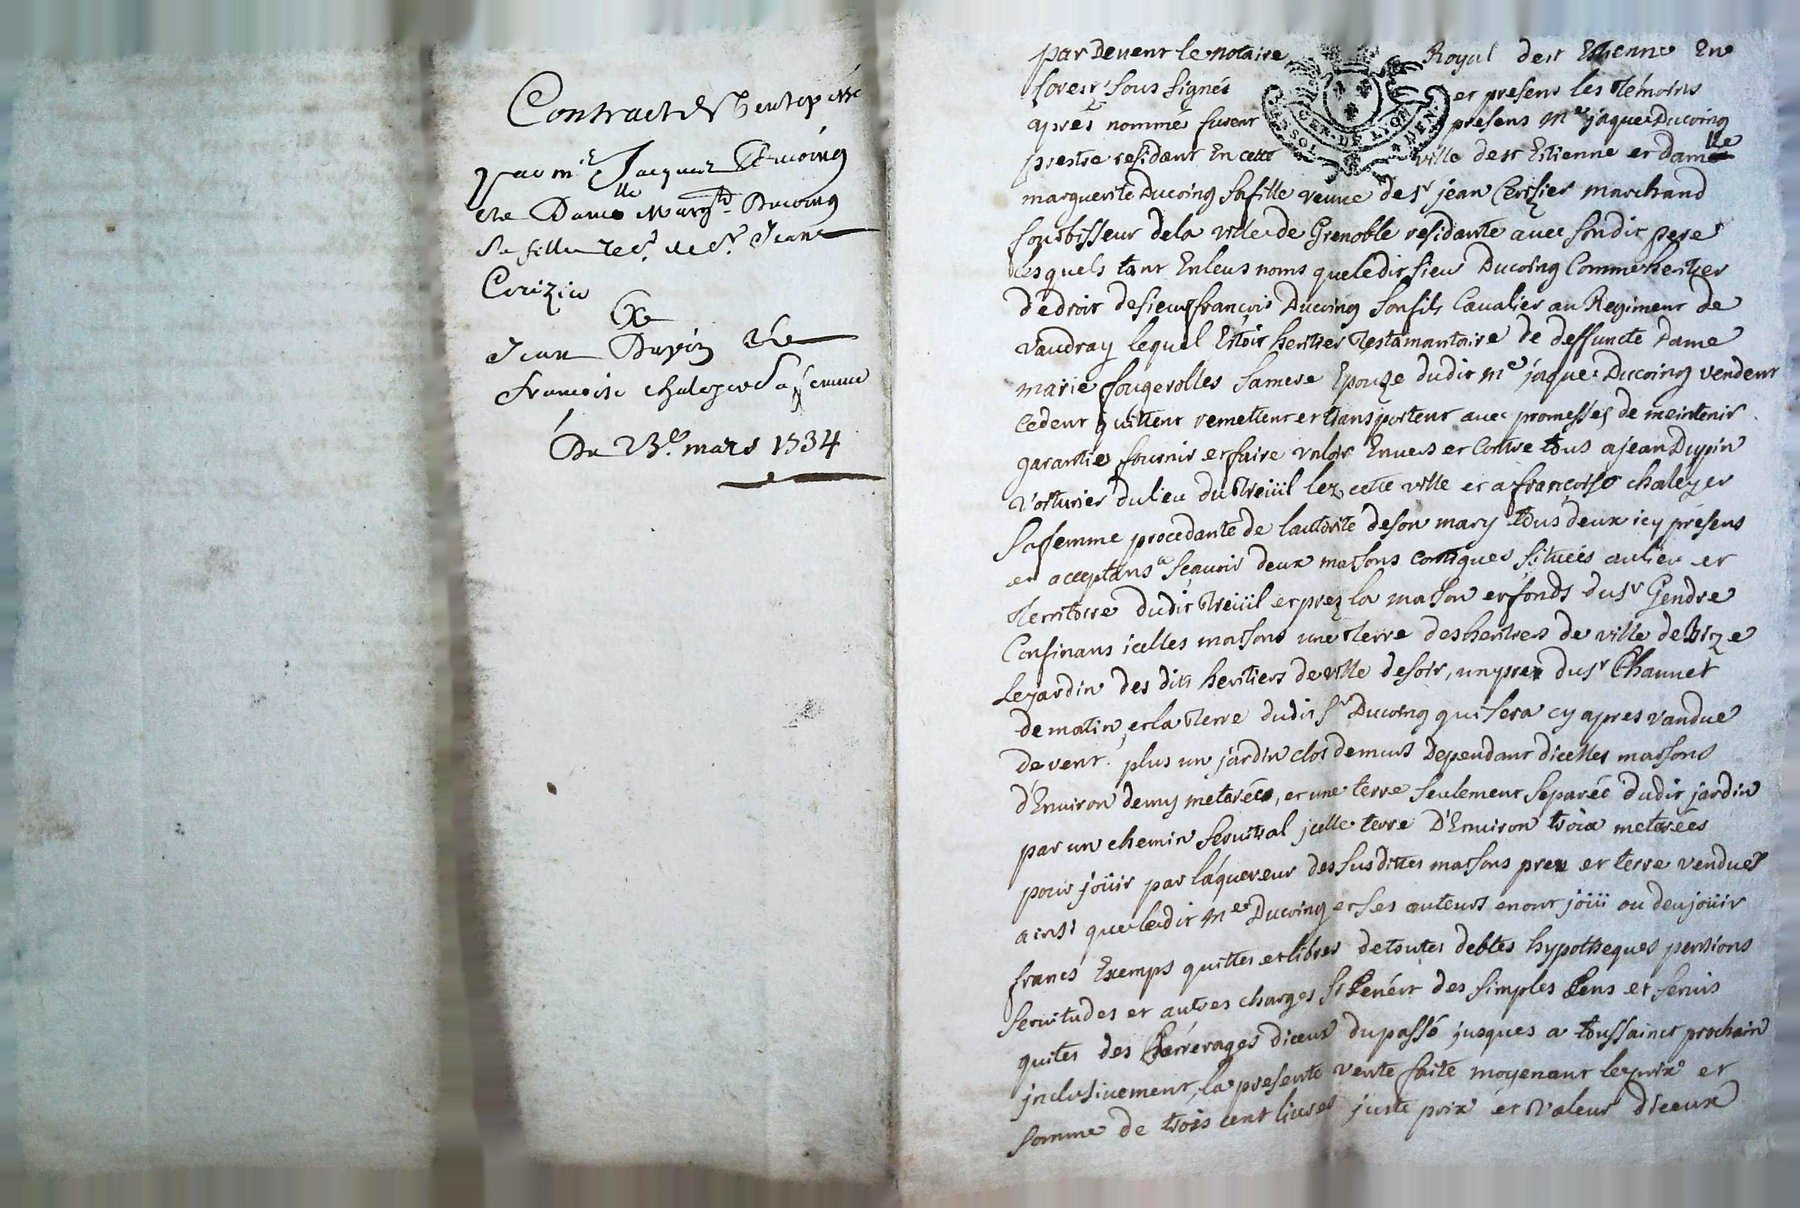 Contract de Vente passé
par me Jacques Ducoing
et Damlle Margte Ducoing
sa fille de sr Jean
Cerizier
Jean Dupin et
francoise chaleyer sa femme
Du 23e mars 1734
par Devent le notaire Royal de st Etienne En
forest sous signé et presens les Témoins
apres nommés furent presens Mre jaques Ducoing
prestre residant En cette ville de st Etienne et Damlle
marguerite Ducoing sa fille veuve de sr jean Cerizier marchand
fourbisseur de la ville de Grenoble residante avec son dit pere
lesquels tant En leurs noms que ledit sieur Ducoing Comme heritier
de droit de sieur françois Ducoing son fils Cavalier au Regiment de
Vaudray lequel Estoit heritier Testamantaire de deffuncte Dame
marie fougerolles sa mere Epouze dudit Me jaques Ducoing vendent
cedent quittent remettent et transportent avec promesses de meintenir
garantie fournir et faire valoir Envers et Contre tous a jean Dupin
Voiturier du lieu du Treüil lez cette ville et a françoise chaleyer
sa femme procedante de lautorité de son mary tous deux icy presens
et acceptans Sçauoir deux maisons contigues situées au lieu et
Territoire dudit Treüil et prez la maison et fonds du sr Gendre
Confinans icelles maisons une Terre des heritiers de ville de bize
le jardin des dits heritiers de ville de soir, un prez du sr Chauuet
de matin, et la Terre dudit sr Ducoing qui sera cy apres vandue
de vent. plus un jardin clos de murs Dependant dicelles maisons
d'Environ demy meterée, et une terre seulement separée dudit jardin
par un chemin servital jcelle terre D'Environ trois meterées
pour joüir par laquereur des susdittes maisons prez et terre vendues
ainsi que ledit Me Ducoing et ses auteurs en ont joüi ou deu joüir
francs Exemps quittes et libres de toutes debtes hypotheques pensions
servitudes et autres charges si Ce n'est des simples Cens et servis
quites des arrérages diceux du passé jusques a toussainct prochain
jnclusivement, la presente vente faite moyenant le prix et
somme de trois cent livres juste prix et Valeur diceux